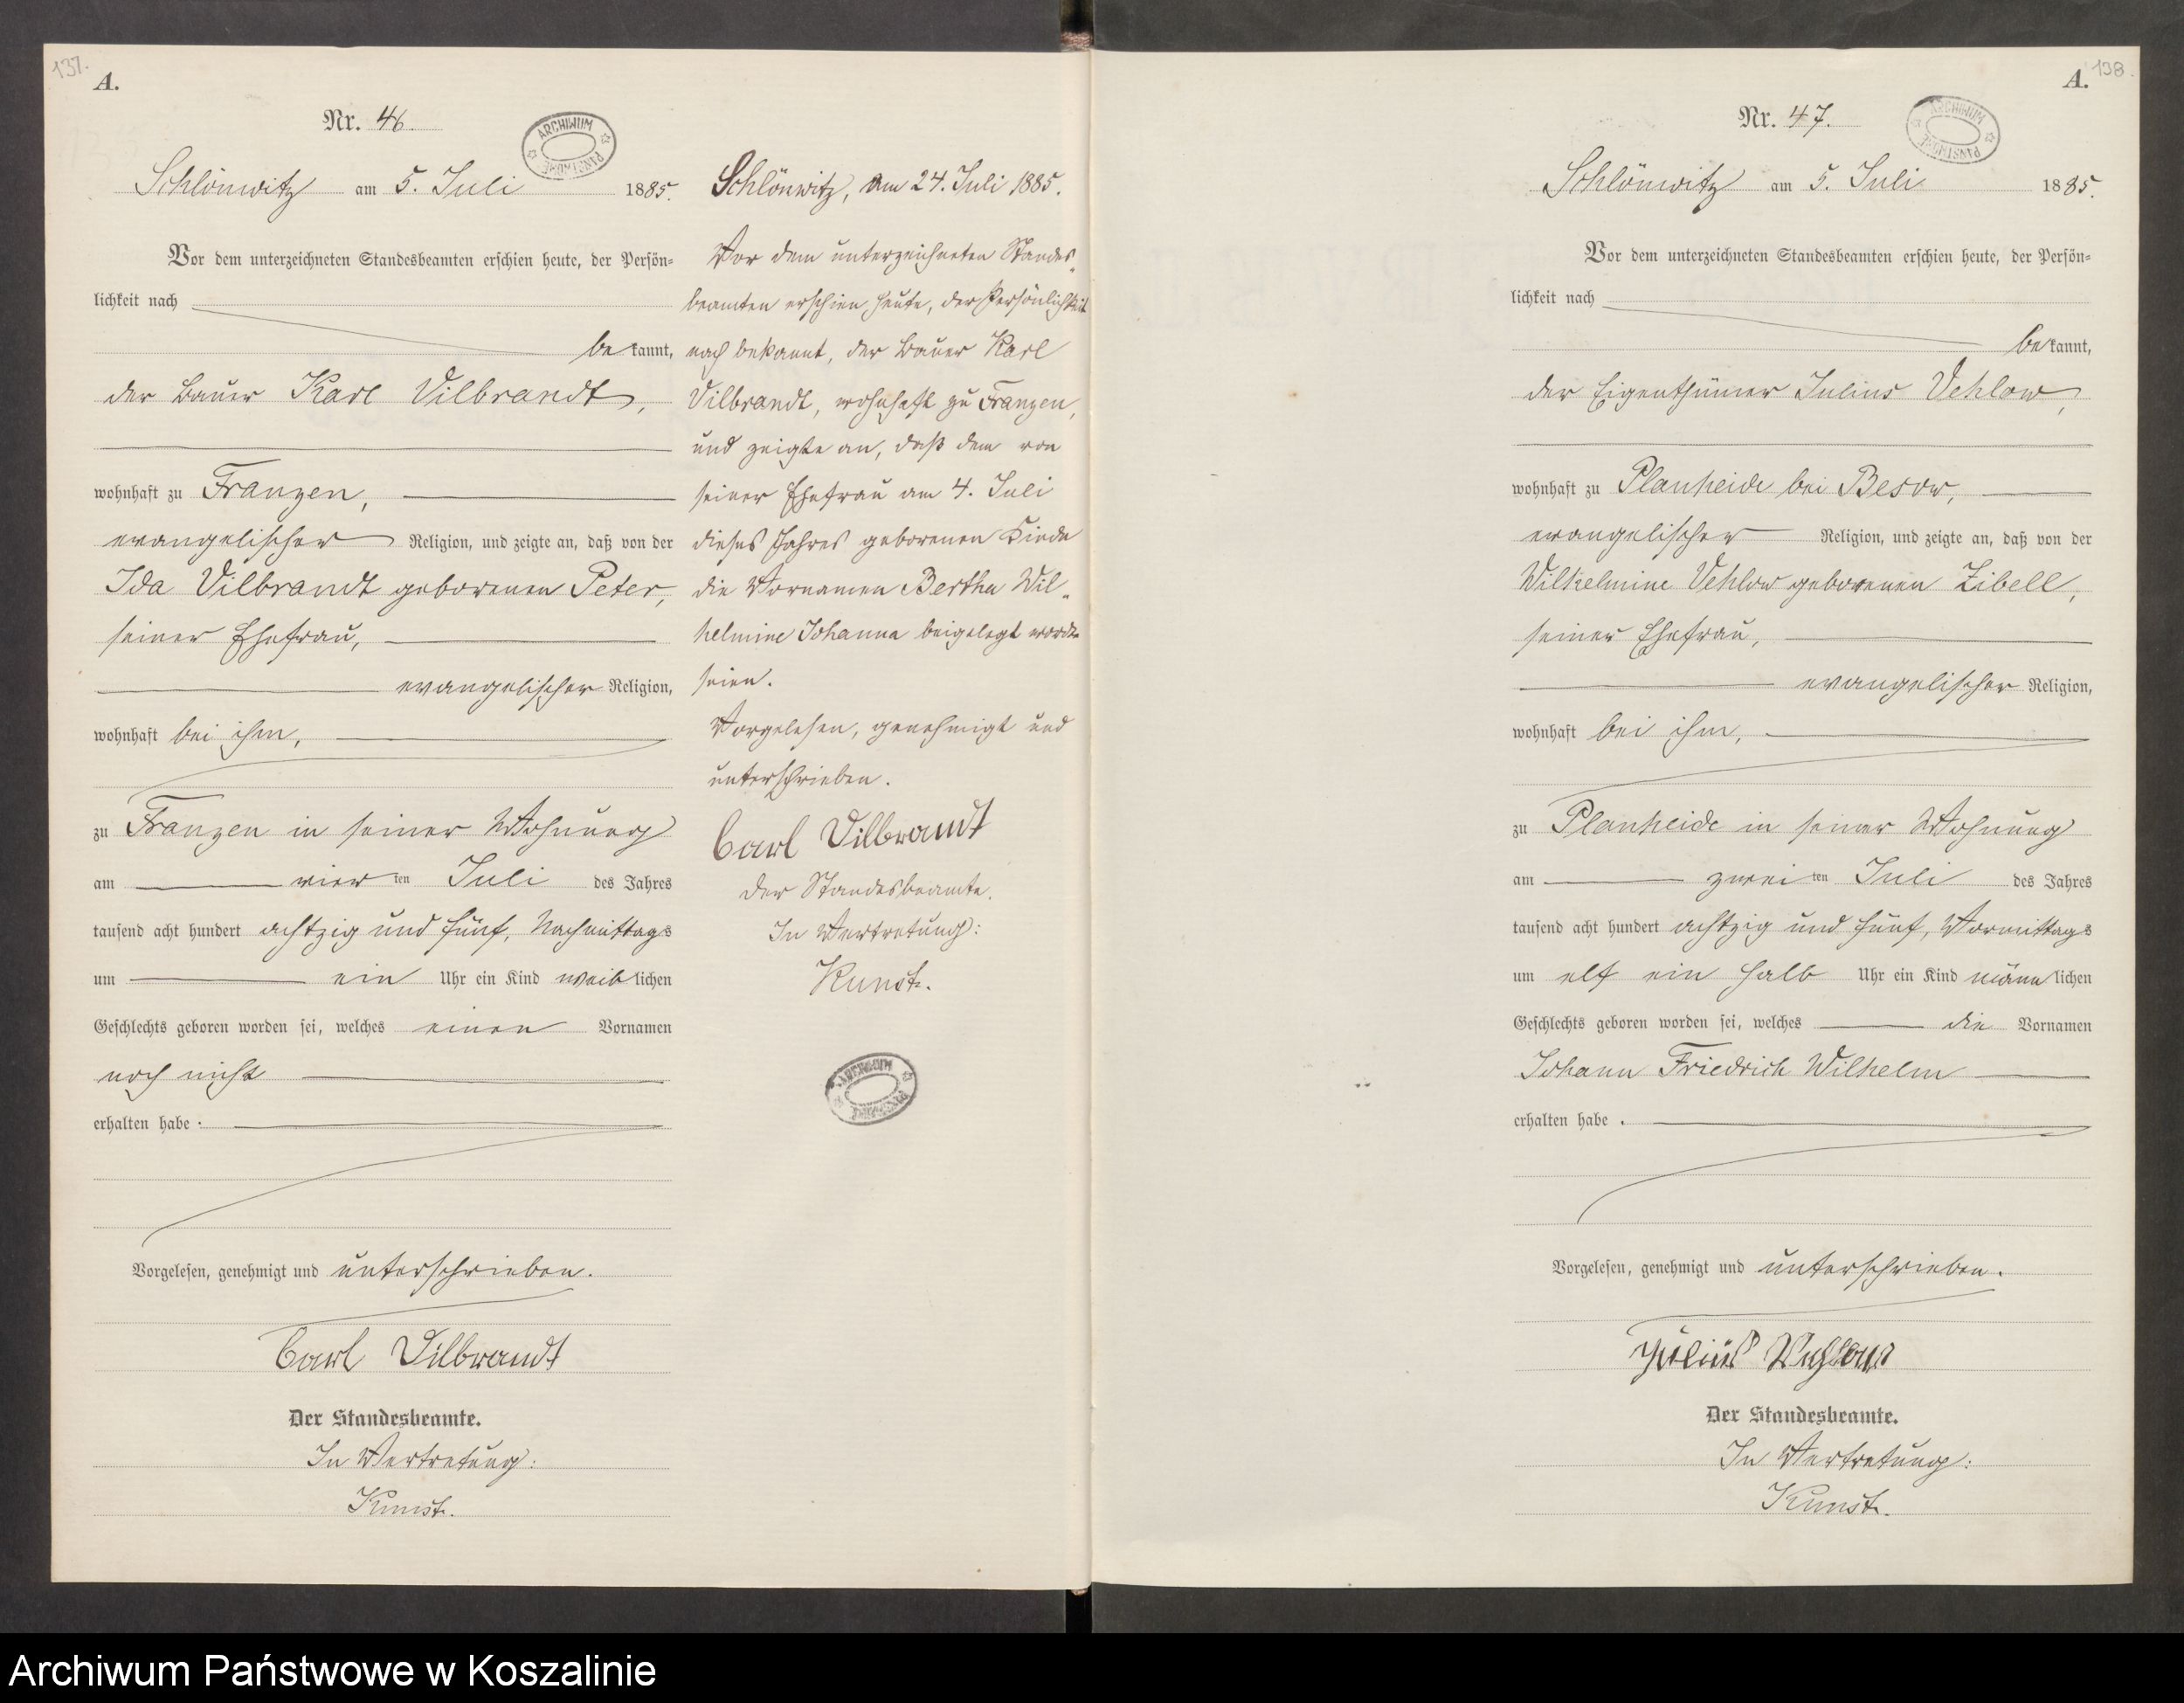 137.
A.
Nr. 46.
ARCHIWUM PAŃSTWOWE
Schlönwitz am 5. Juli 1885.
Vor dem unterzeichneten Standesbeamten erschien heute, der Persön=
lichkeit nach
bekannt,
der Bauer Karl Vilbrandt,
wohnhaft zu Franzen,
evangelischer Religion, und zeigte an, daß von der
Ida Vilbrandt geborenen Peter,
seiner Ehefrau,
evangelischer Religion,
wohnhaft bei ihm,
zu Franzen in seiner Wohnung
am vierten Juli des Jahres
tausend acht hundert achtzig und fünf, Nachmittags
um ein Uhr ein Kind weiblichen
Geschlechts geboren worden sei, welches einen Vornamen
noch nicht
erhalten habe.
Vorgelesen, genehmigt und unterschrieben.
Carl Vilbrandt
Der Standesbeamte.
In Vertretung:
Kunst.
Schlönwitz, am 24. Juli 1885.
Vor dem unterzeichneten Standes=
beamten erschien heute, der Persönlichkeit
nach bekannt, der Bauer Karl
Vilbrandt, wohnhaft zu Franzen,
und zeigte an, daß dem von
seiner Ehefrau am 4. Juli
dieses Jahres geborenen Kinde
die Vornamen Bertha Wil=
helmine Johanna beigelegt worden
seien.
Vorgelesen, genehmigt und
unterschrieben.
Carl Vilbrandt
Der Standesbeamte.
In Vertretung:
Kunst.
ARCHIWUM PAŃSTWOWE
138.
A.
Nr. 47.
ARCHIWUM PAŃSTWOWE
Schlönwitz am 5. Juli 1885.
Vor dem unterzeichneten Standesbeamten erschien heute, der Persön=
lichkeit nach
bekannt,
der Eigenthümer Julius Vehlow,
wohnhaft zu Planheide bei Besow,
evangelischer Religion, und zeigte an, daß von der
Wilhelmine Vehlow geborenen Zibell,
seiner Ehefrau,
evangelischer Religion,
wohnhaft bei ihm,
zu Planheide in seiner Wohnung
am zweiten Juli des Jahres
tausend acht hundert achtzig und fünf, Vormittags
um elf ein halb Uhr ein Kind männlichen
Geschlechts geboren worden sei, welches die Vornamen
Johann Friedrich Wilhelm
erhalten habe.
Vorgelesen, genehmigt und unterschrieben.
Julius Vehlow
Der Standesbeamte.
In Vertretung:
Kunst.
Archiwum Państwowe w Koszalinie